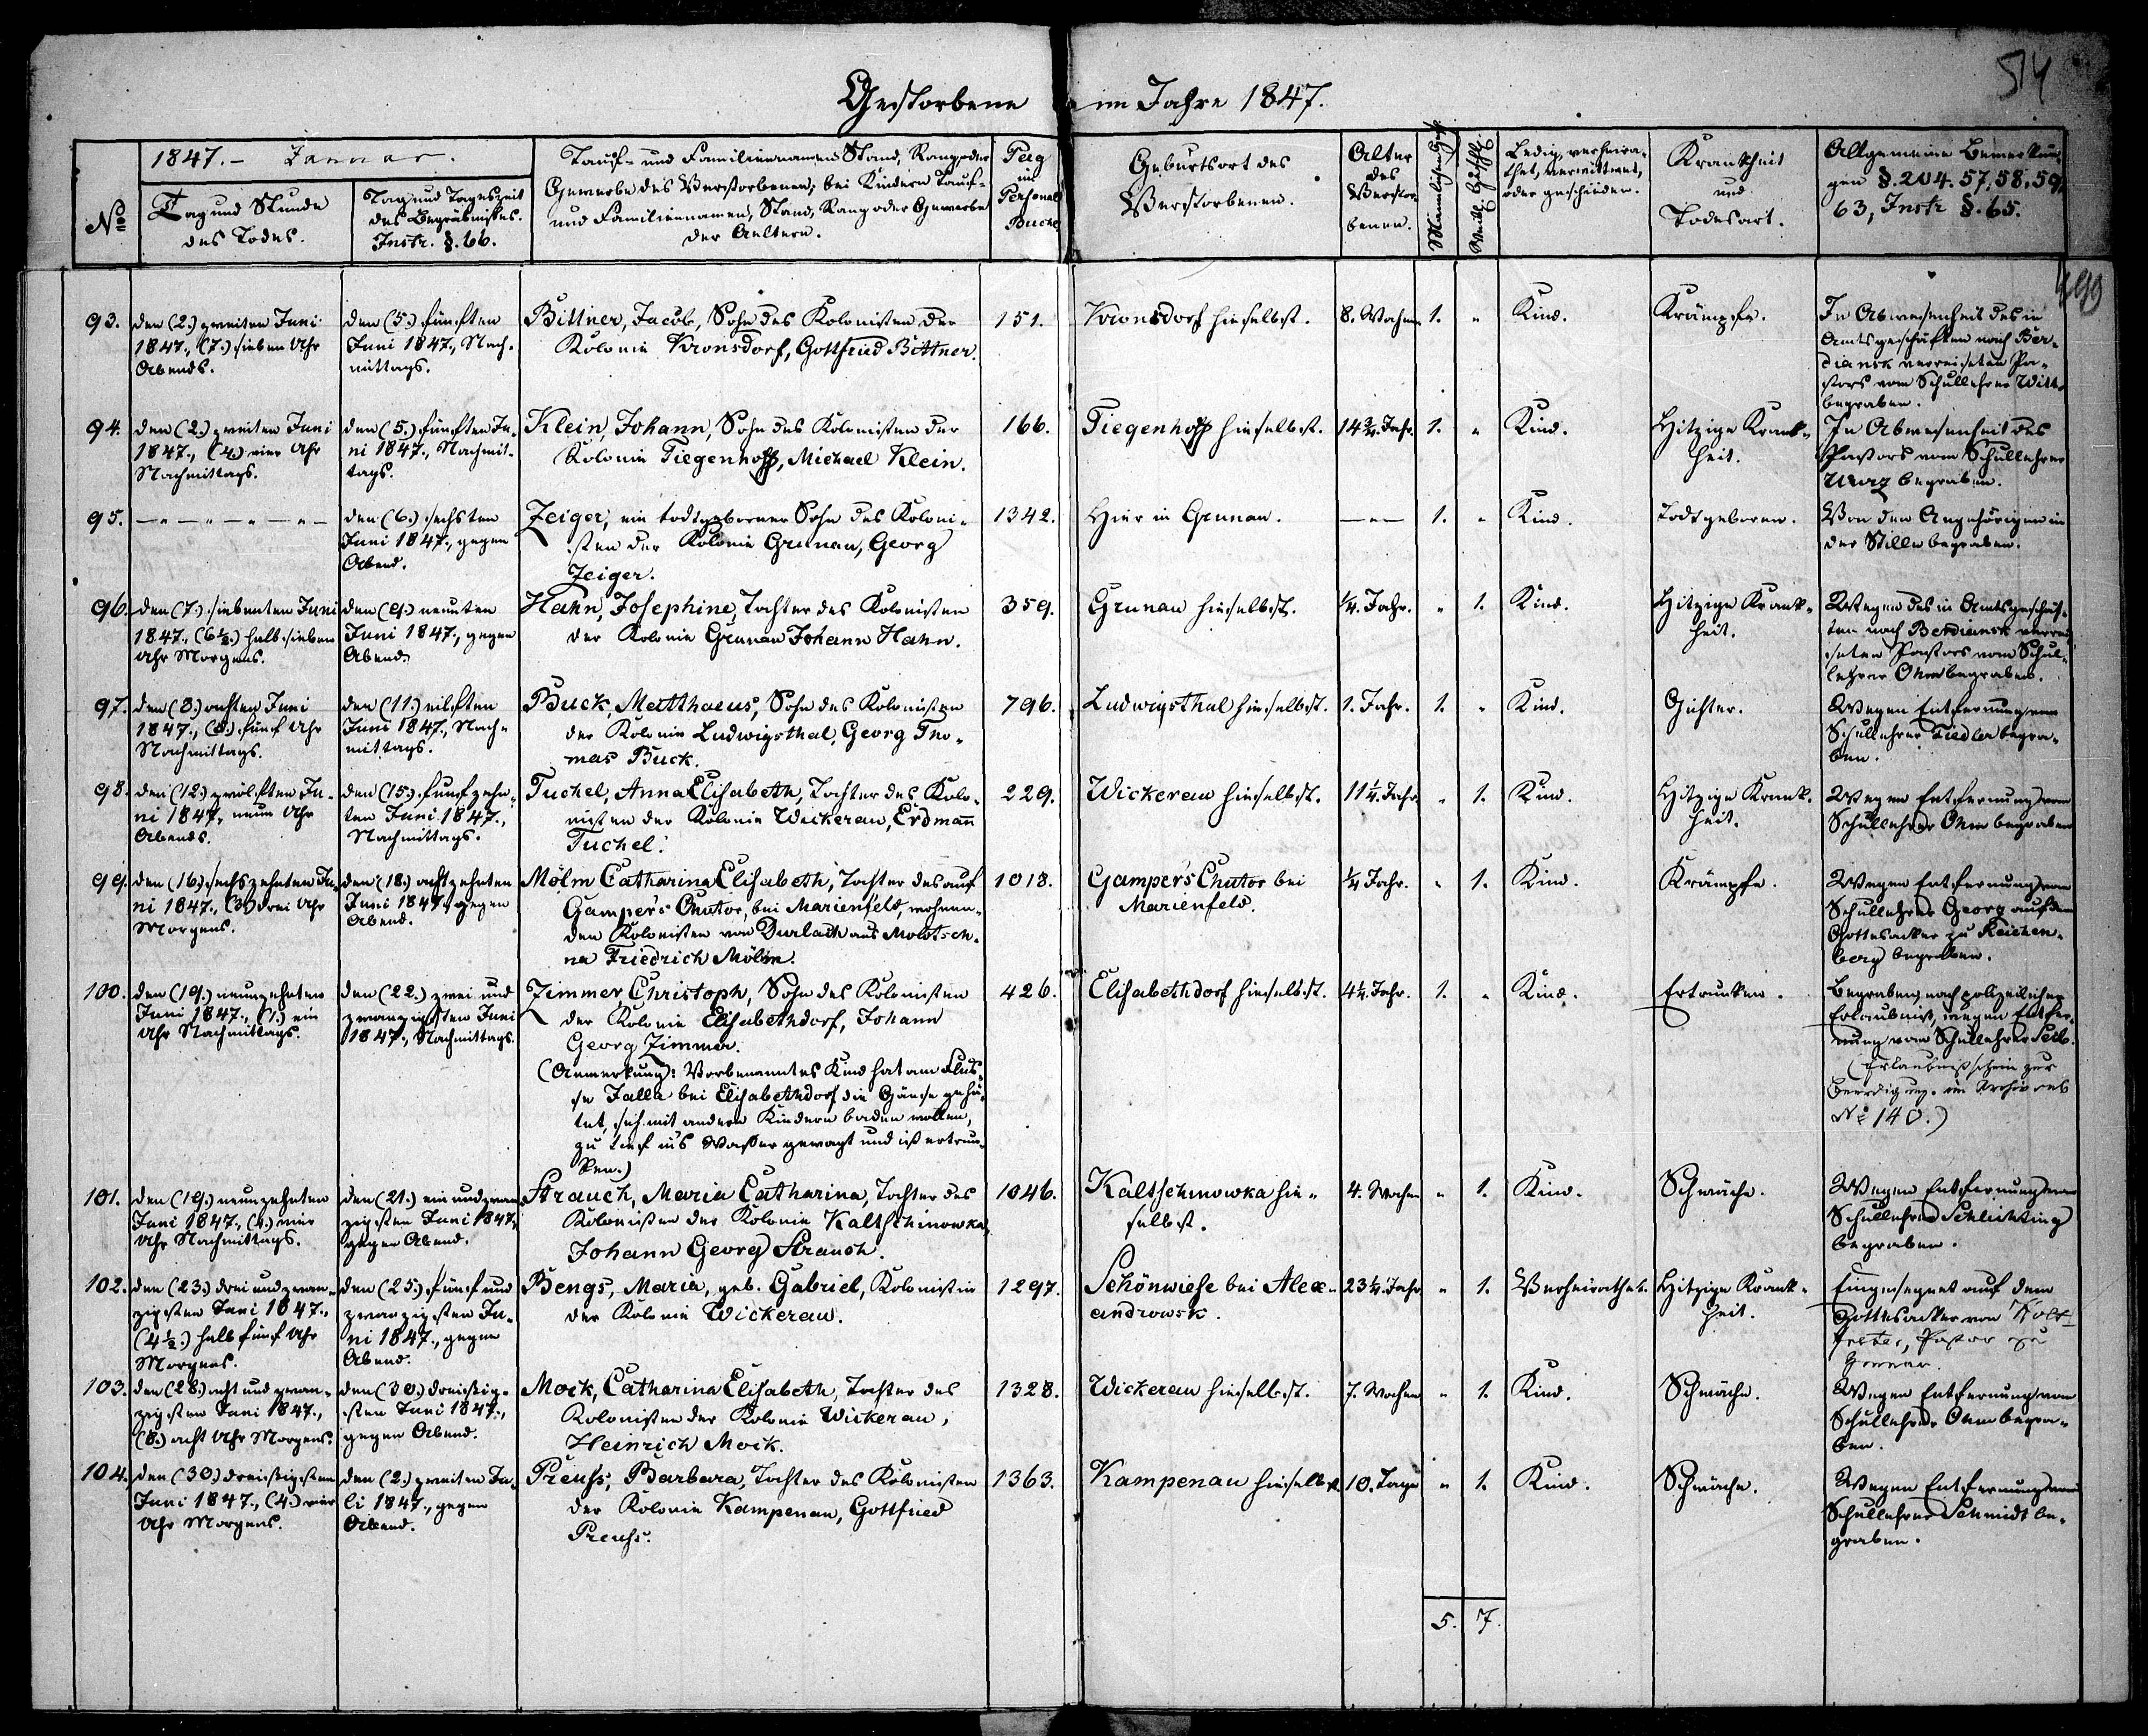 514
Gestorbene im Jahre 1847.
1847. – Januar.
№
Tag und Stunde
des Todes.
Tag und Tageszeit
des Begräbnißes.
Instr. §. 66.
Tauf- und Familiennamen, Stand, Rang oder
Gewerbe des Verstorbenen, bei Kindern Tauf-
und Familiennamen, Stand, Rang oder Gewerbe
der Aeltern.
Pag
im
Personal
Buche
Geburtsort des
Verstorbenen.
Alter
des
Verstor-
benen.
Männlichen Gesch.
Weibl. Geschl.
Ledig, verheira-
thet, verwittwet,
oder geschieden.
Krankheit
und
Todesart.
Allgemeine Bemerkun-
gen §. 204. 57, 58, 59,
63, Instr §. 65.
93.
den (2.) zweiten Juni
1847., (7.) sieben Uhr
Abends.
den (5.) fünften
Juni 1847., Nach-
mittags.
Bittner, Jacob, Sohn des Kolonisten der
Kolonie Kronsdorf, Gottfried Bittner.
151.
Kronsdorf hieselbst.
8. Wochen
1.
"
Kind.
Krämpfe.
In Abwesenheit des in
Amtsgeschäften nach Ber-
diansk verreiseten Pa-
stors vom Schullehrer Witt
begraben.
94.
den (2.) zweiten Juni
1847., (4.) vier Uhr
Nachmittags.
den (5.) fünften Ju-
ni 1847., Nachmit-
tags.
Klein, Johann, Sohn des Kolonisten der
Kolonie Tiegenhoff, Michael Klein.
166.
Tiegenhoff hieselbst.
14 3/4. Jahr.
1.
"
Kind.
Hitzige Krank-
heit.
In Abwesenheit des
Pastors vom Schullehrer
begraben.
95.
— " — " — " — " —
den (6.) sechsten
Juni 1847., gegen
Abend.
Zeiger, ein todtgeborener Sohn des Koloni-
sten der Kolonie Grunau, Georg
Zeiger.
1342.
Hier in Grunau.
— " —
1.
"
Kind.
Todtgeboren.
Von den Angehörigen in
der Stille begraben.
96.
den (7.) siebenten Juni
1847., (6 1/2.) halb sieben
Uhr Morgens.
den (9.) neunten
Juni 1847., gegen
Abend.
Hahn, Josephine, Tochter des Kolonisten
der Kolonie Grunau Johann Hahn.
359.
Grunau hieselbst.
1/4. Jahr.
"
1.
Kind.
Hitzige Krank-
heit.
Wegen des in Amtsgeschäf-
ten nach Berdiansk verrei
seten Pastors vom Schul-
lehrer Ohm begraben.
97.
den (8.) achten Juni
1847., (5.) fünf Uhr
Nachmittags.
den (11.) eilften
Juni 1847., Nach-
mittags.
Buck, Matthaeus, Sohn des Kolonisten
der Kolonie Ludwigsthal, Georg Tho-
mas Buck.
796.
Ludwigsthal hieselbst.
1. Jahr.
1.
"
Kind.
Gichter.
Wegen Entfernung vom
Schullehrer Fiedler begra-
ben.
98.
den (12.) zwölften Ju-
ni 1847, neun Uhr
Abends.
den (15.) fünfzehn-
ten Juni 1847.,
Nachmittags.
Tuchel, Anna Elisabeth, Tochter des Kolo-
nisten der Kolonie Wickerau, Erdmann
Tuchel.
229.
Wickerau hieselbst.
11 1/4. Jahr.
"
1.
Kind.
Hitzige Krank-
heit.
Wegen Entfernung vom
Schullehrer Ohm begraben
99.
den (16.) sechszehnten Ju-
ni 1847., (3.) drei Uhr
Morgens.
den (18.) achtzehnten
Juni 1847. gegen
Abend.
Mölm Catharina Elisabeth, Tochter des auf
Gamper's Chutor, bei Marienfeld, wohnen-
den Kolonisten von Durlach aus Molotsch-
na Friedrich Mölm.
1018.
Gamper's Chutor bei
Marienfeld.
1/4 Jahr.
"
1.
Kind.
Krämpfe.
Wegen Entfernung vom
Schullehrer Georg auf dem
Gottesacker zu Reichen-
berg begraben.
100.
den (19.) neunzehnten
Juni 1847., (1.) ein
Uhr Nachmittags.
den (22.) zwei und
zwanzigsten Juni
1847., Nachmittags.
Zimmer, Christoph, Sohn des Kolonisten
der Kolonie Elisabethdorf, Johann
Georg Zimmer.
(Anmerkung: Vorbenanntes Kind hat am Flus-
se Jalla bei Elisabethdorf die Gänse gehü-
tet, sich mit andern Kindern baden wollen,
zu tief in's Wasser gewagt und ist ertrun-
ken.)
426.
Elisabethdorf hieselbst.
4 1/4. Jahr.
1.
"
Kind.
Ertrunken.
Begraben, nach polizeilicher
Erlaubniß, wegen Entfer-
nung vom Schullehrer Seib.
(Erlaubnißschein zur
Beerdigung im Archiv sub
№ 140.)
101.
den (19.) neunzehnten
Juni 1847., (4.) vier
Uhr Nachmittags.
den (21.) ein und zwan-
zigsten Juni 1847.
gegen Abend.
Strauch, Maria Catharina, Tochter des
Kolonisten der Kolonie Kaltschinowka,
Johann Georg Strauch.
1046.
Kaltschinowka hie-
selbst.
4. Wochen
"
1.
Kind.
Schwäche.
Wegen Entfernung vom
Schullehrer Schlichting
begraben.
102.
den (23.) drei und zwan-
zigsten Juni 1847.,
(4 1/2.) halb fünf Uhr
Morgens.
den (25.) fünf und
zwanzigsten Ju-
ni 1847., gegen
Abend.
Bengs, Maria, geb. Gabriel, Kolonistin
der Kolonie Wickerau.
1297.
Schönwiese bei Alex-
androwsk.
23 1/4. Jahr
"
1.
Verheirathet.
Hitzige Krank-
heit.
Eingesegnet auf dem
Gottesacker von Holt-
freter, Pastor zu
Grunau.
103.
den (28.) acht und zwan-
zigsten Juni 1847.,
(8.) acht Uhr Morgens.
den (30.) dreißig-
sten Juni 1847.,
gegen Abend.
Mock, Catharina Elisabeth, Tochter des
Kolonisten der Kolonie Wickerau,
Heinrich Mock.
1328.
Wickerau hieselbst.
7. Wochen
"
1.
Kind.
Schwäche.
Wegen Entfernung vom
Schullehrer Ohm begra-
ben.
104.
den (30.) dreißigsten
Juni 1847., (4.) vier
Uhr Morgens.
den (2.) zweiten Ju-
li 1847., gegen
Abend.
Preuss, Barbara, Tochter des Kolonisten
der Kolonie Kampenau, Gottfried
Preuss.
1363.
Kampenau hieselbst.
10. Tage
"
1.
Kind.
Schwäche.
Wegen Entfernung vom
Schullehrer Schmidt be-
graben.
5. 7.